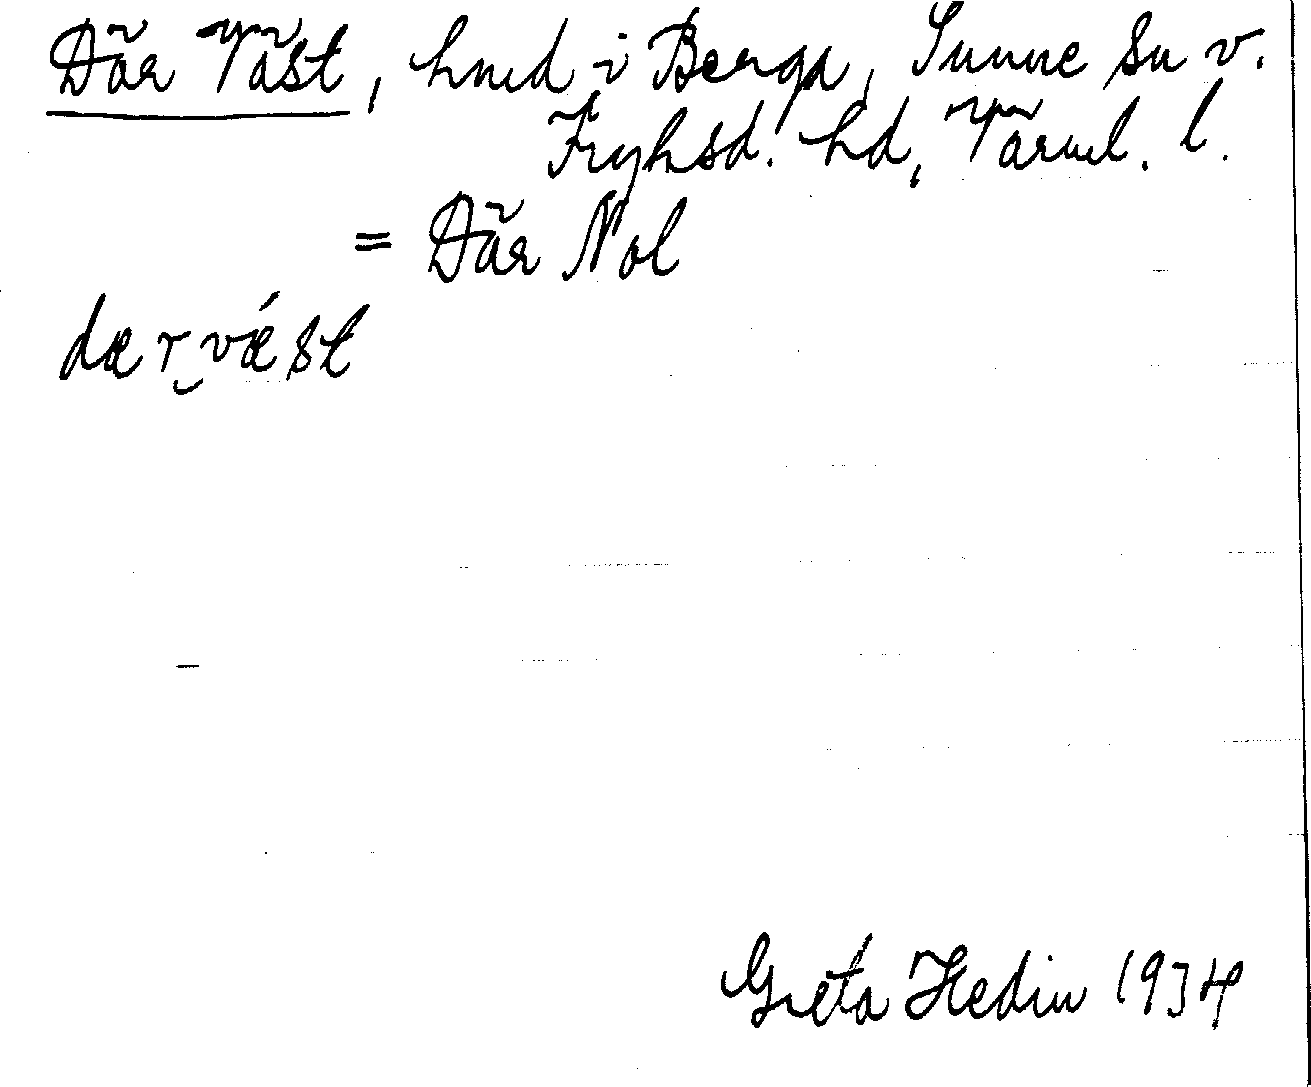 Där Väst, hmd i Berga, Sunne sn v.
Fryksd. hd, Värml. l.
= Där Nol
dær‿væ´st
Greta Hedin 1934